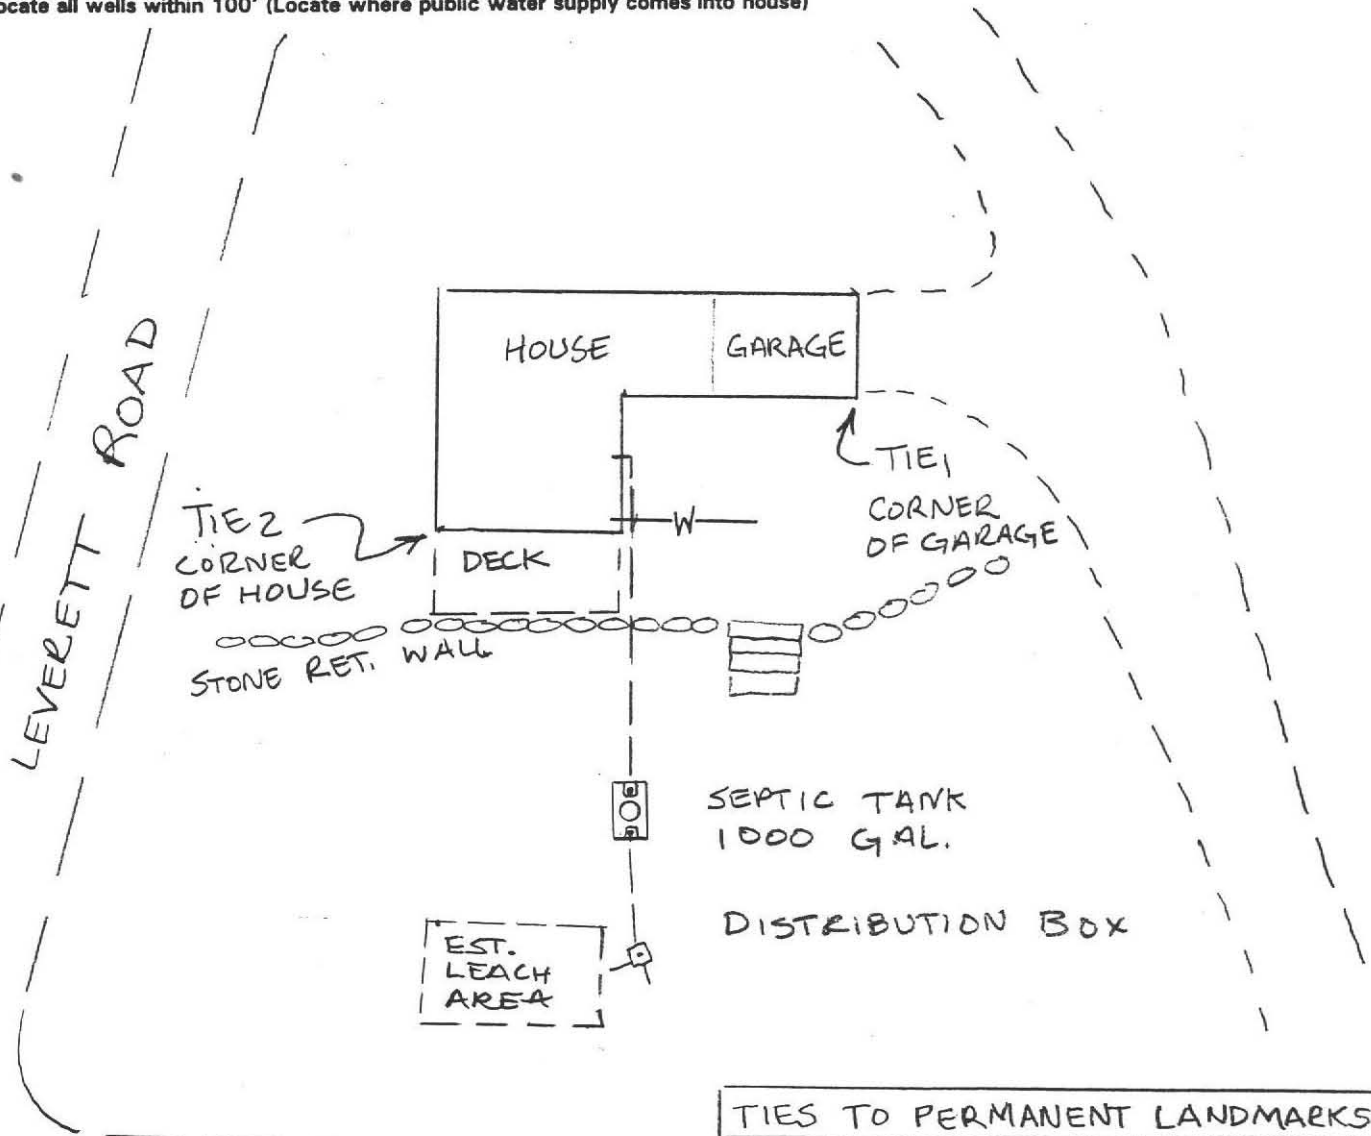 ocate all wells within 100' (Locate where public water supply comes into house)
HOUSE
GARAGE
LEVERETT ROAD
TIE 1
CORNER
OF GARAGE
TIE 2
CORNER
OF HOUSE
W
DECK
STONE RET. WALL
SEPTIC TANK
1000 GAL.
DISTRIBUTION BOX
EST.
LEACH
AREA
TIES TO PERMANENT LANDMARKS